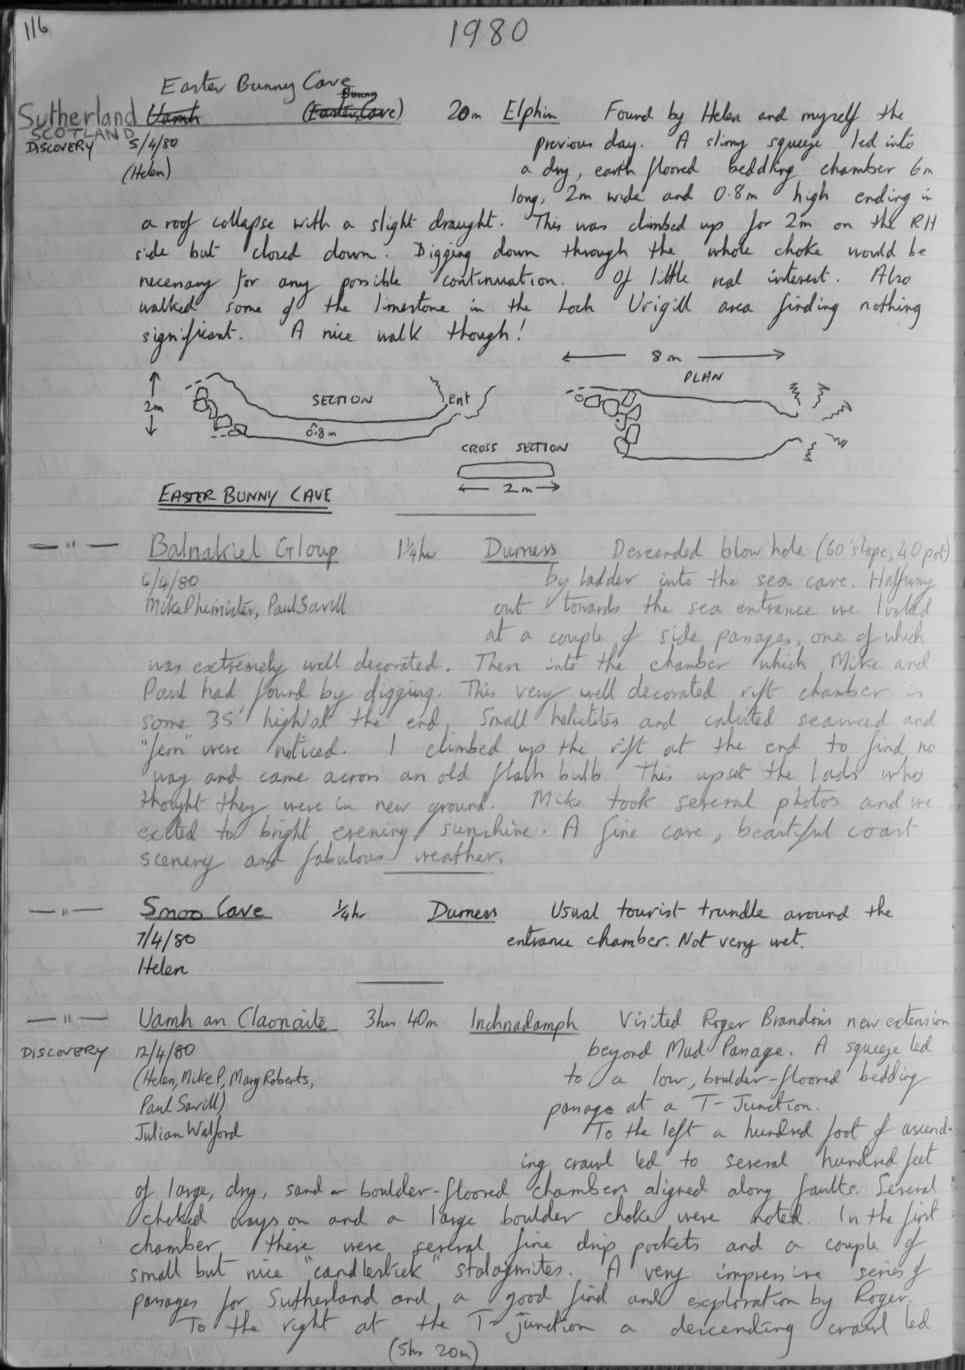 116
1980
Easter Bunny Cave
Sutherland Uamh (Easter Bunny Cave) 20m Elphin Found by Helen and myself the
SCOTLAND
DISCOVERY 5/4/80 previous day. A slimy squeeze led into
(Helen) a dry, earth floored bedding chamber 6m
long, 2m wide and 0.8m high ending in
a roof collapse with a slight draught. This was climbed up for 2m on the RH
side but closed down. Digging down through the whole choke would be
necessary for any possible continuation. Of little real interest. Also
walked some of the limestone in the Loch Urigill area finding nothing
significant. A nice walk though!
8m
PLAN
2m
SECTION
Ent
0.8m
CROSS SECTION
2m
EASTER BUNNY CAVE
— " — Balnakiel Gloup 1¼hr Durness Descended blow hole (60' slope, 40 pot)
6/4/80 by ladder into the sea cave. Halfway
Mike Pheimister, Paul Savill out towards the sea entrance we looked
at a couple of side passages, one of which
was extremely well decorated. Then into the chamber which Mike and
Paul had found by digging. This very well decorated rift chamber is
some 35' high at the end. Small helictites and calcited seaweed and
"fern" were noticed. I climbed up the rift at the end to find no
way and came across an old flash bulb. This upset the lads who
thought they were in new ground. Mike took several photos and we
exited to bright evening sunshine. A fine cave, beautiful coast
scenery and fabulous weather.
— " — Smoo Cave ¼hr Durness Usual tourist trundle around the
7/4/80 entrance chamber. Not very wet.
Helen
— " — Uamh an Claonaite 3hrs 40m Inchnadamph Visited Roger Brandon's new extension
DISCOVERY 12/4/80 beyond Mud Passage. A squeeze led
(Helen, Mike P, Mary Roberts, to a low, boulder-floored bedding
Paul Savill) passage at a T-Junction.
Julian Walford To the left a hundred foot of ascend-
ing crawl led to several hundred feet
of large, dry, sand or boulder-floored chambers aligned along faults. Several
choked ways on and a large boulder choke were noted. In the first
chamber there were several fine drip pockets and a couple of
small but nice "candlestick" stalagmites. A very impressive series of
passages for Sutherland and a good find and exploration by Roger.
To the right at the T-junction a descending crawl led
(5hr 20m)